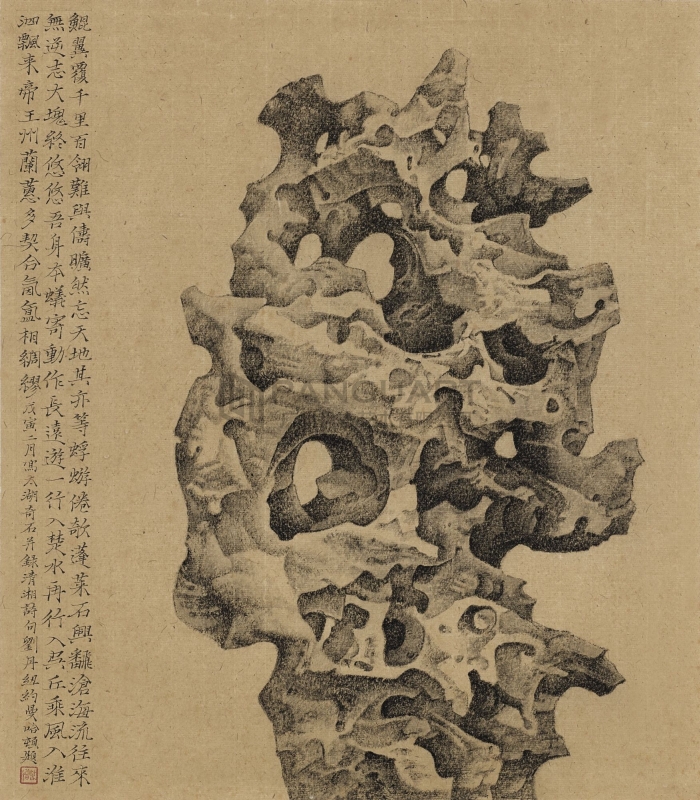 鯤翼覆千里百翎難與儔曠然忘天地其亦等蜉蝣倦欹蓬萊石興飜滄海流往來
無逆志大塊終悠悠吾身本蟻寄動作長遠遊一行入楚水再行入吳丘乘風入淮
泗飄來帝王州蘭蕙多契合氤氳相綢繆戊寅二月寫太湖奇石并錄清湘詩句劉丹紐約曼哈頓題